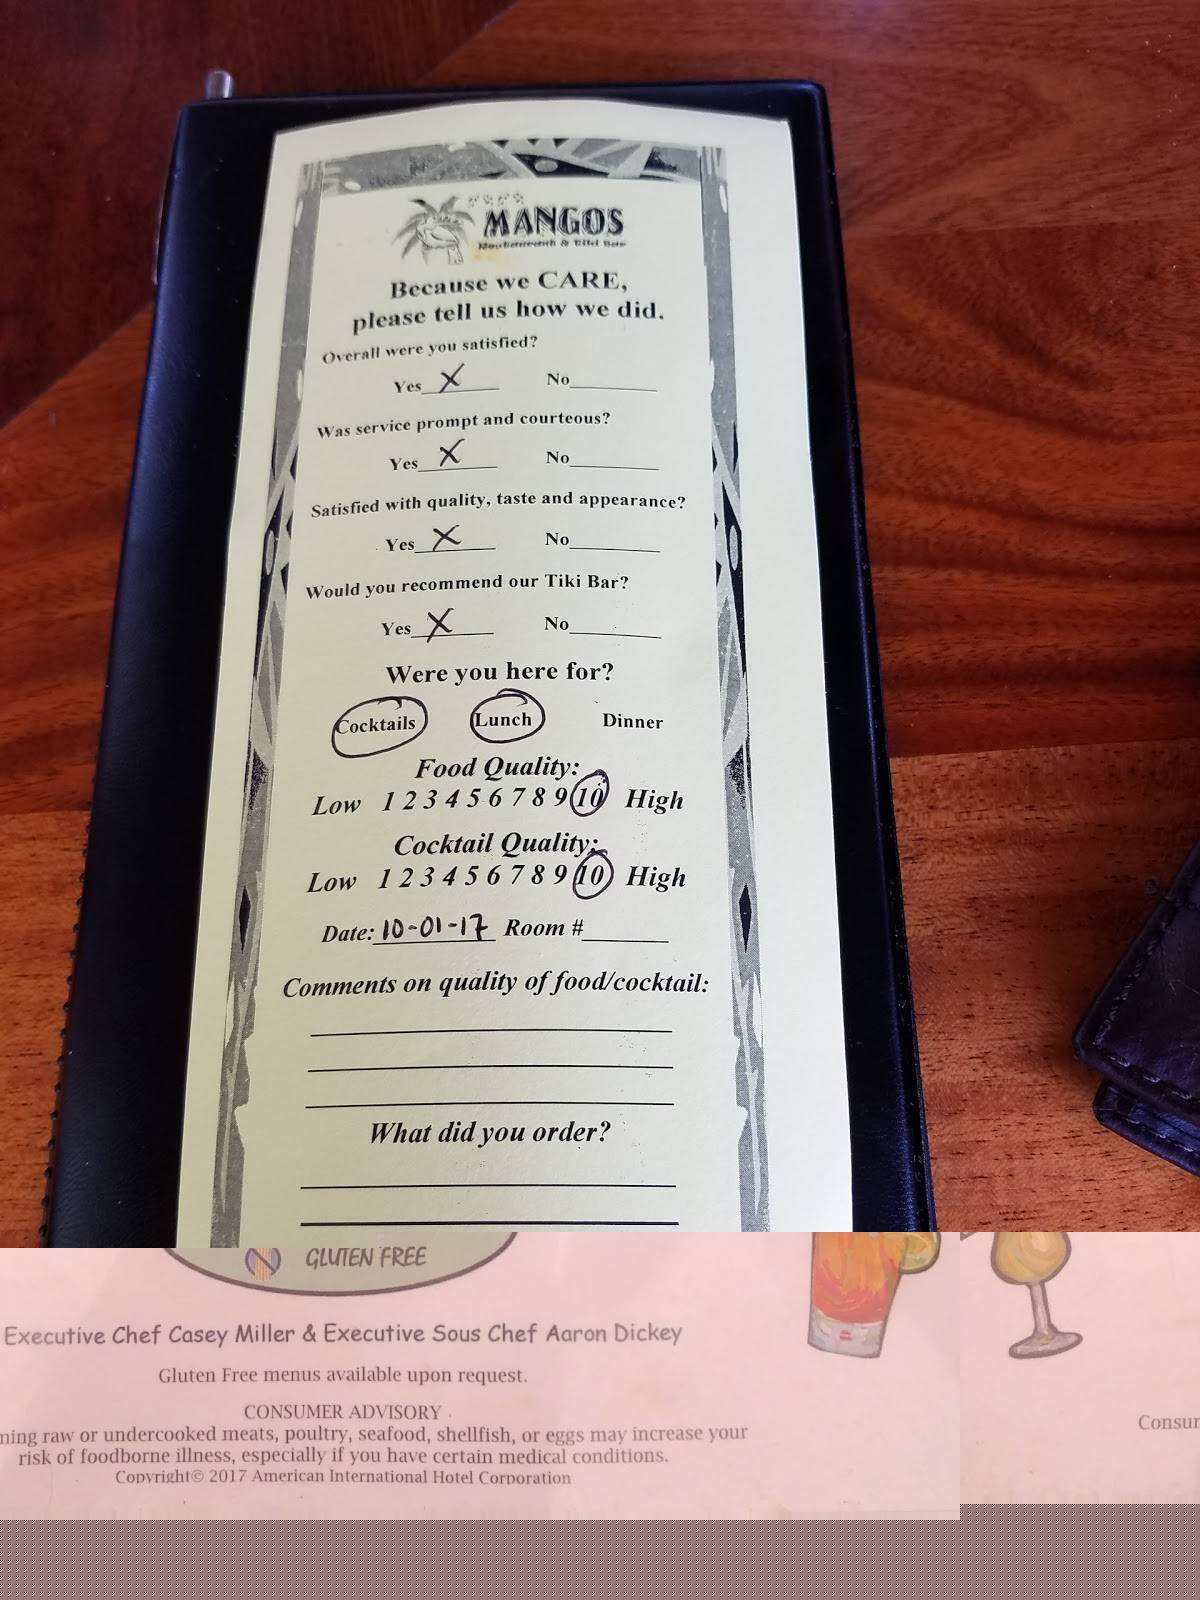 MANGOS
Restaurant & Tiki Bar
Because we CARE,
please tell us how we did.
Overall were you satisfied?
Yes X No
Was service prompt and courteous?
Yes X No
Satisfied with quality, taste and appearance?
Yes X No
Would you recommend our Tiki Bar?
Yes X No
Were you here for?
Cocktails Lunch Dinner
Food Quality:
Low 1 2 3 4 5 6 7 8 9 10 High
Cocktail Quality:
Low 1 2 3 4 5 6 7 8 9 10 High
Date: 10-01-17 Room #
Comments on quality of food/cocktail:
What did you order?
GLUTEN FREE
Executive Chef Casey Miller & Executive Sous Chef Aaron Dickey
Gluten Free menus available upon request.
CONSUMER ADVISORY
ming raw or undercooked meats, poultry, seafood, shellfish, or eggs may increase your
risk of foodborne illness, especially if you have certain medical conditions.
Copyright© 2017 American International Hotel Corporation
Consum